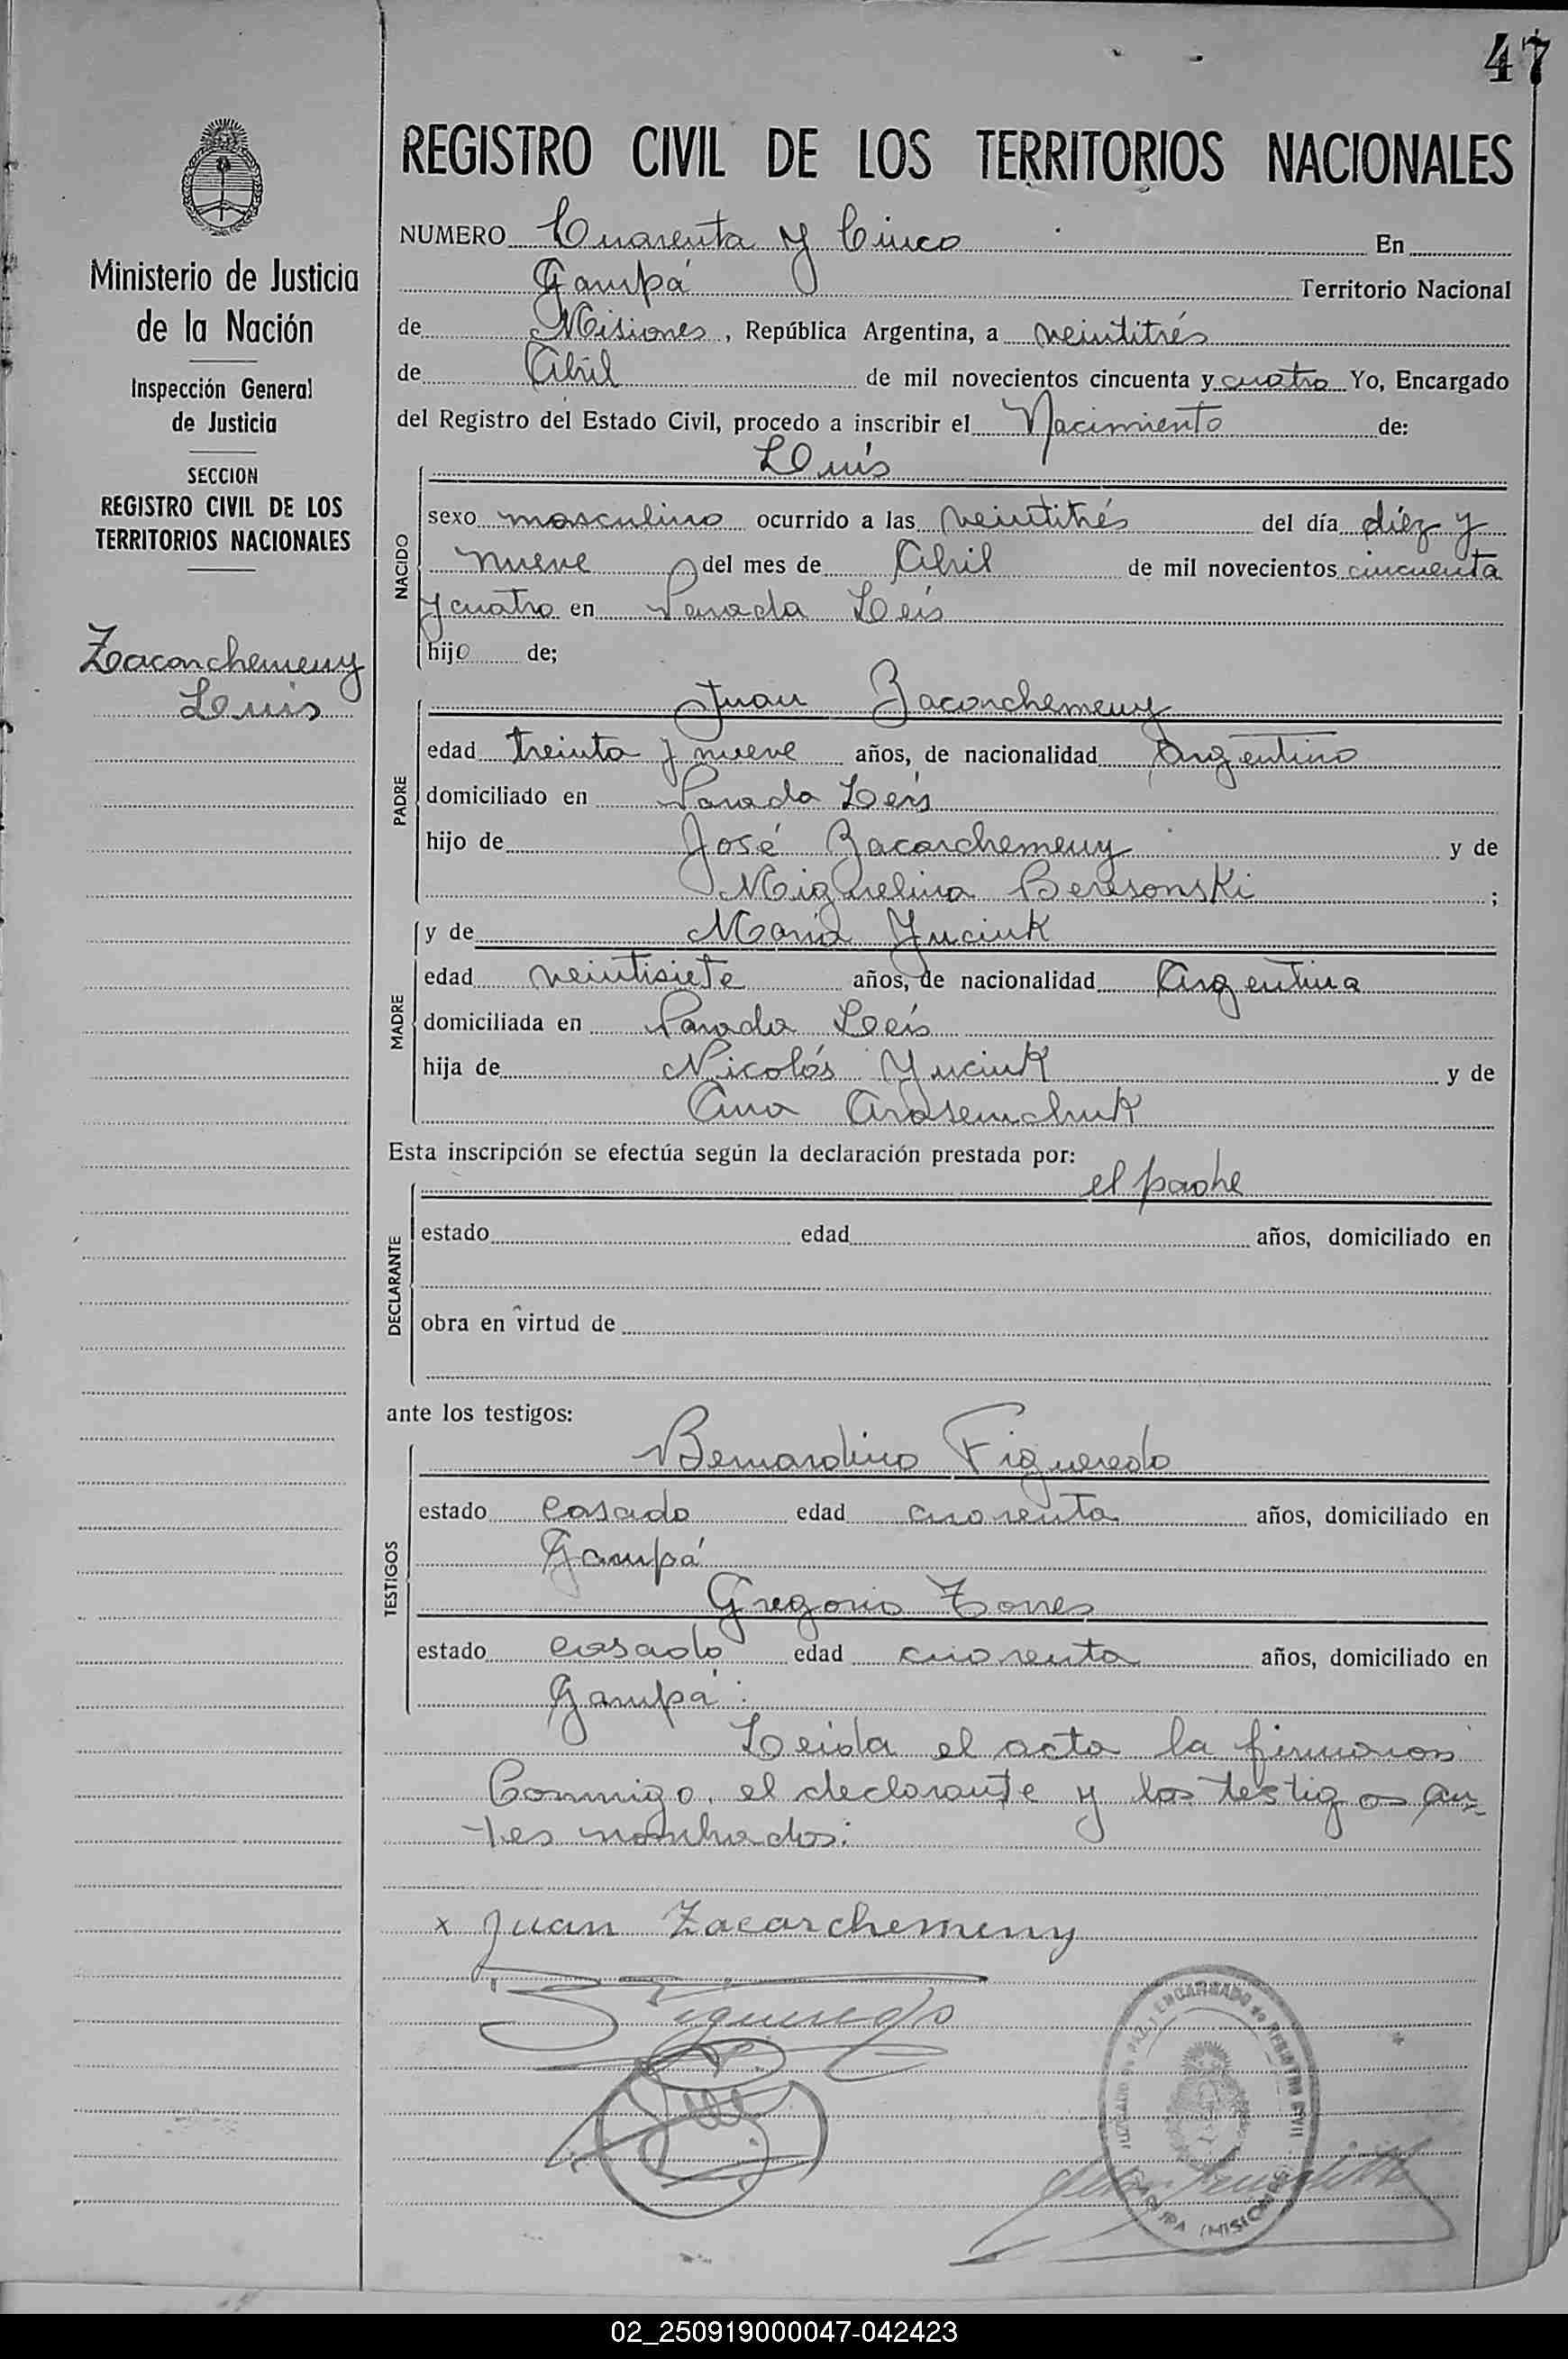 47
REGISTRO CIVIL DE LOS TERRITORIOS NACIONALES
Ministerio de Justicia
de la Nación
Inspección General
de Justicia
SECCION
REGISTRO CIVIL DE LOS
TERRITORIOS NACIONALES
Zacarchemeny
Luis
NUMERO Cuarenta y Cinco En
Garupá Territorio Nacional
de Misiones, República Argentina, a veintitrés
de Abril de mil novecientos cincuenta y cuatro Yo, Encargado
del Registro del Estado Civil, procedo a inscribir el Nacimiento de:
NACIDO
Luis
sexo masculino ocurrido a las veintitrés del día diéz y
nueve del mes de Abril de mil novecientos cincuenta
y cuatro en Parada Leis
hijo de;
PADRE
Juan Zacarchemeny
edad treinta y nueve años, de nacionalidad Argentino
domiciliado en Parada Leis
hijo de José Zacarchemeny y de
Miguelina Beresonski ;
MADRE
y de María Yuciuk
edad veintisiete años, de nacionalidad Argentina
domiciliada en Parada Leis
hija de Nicolás Yuciuk y de
Ana Arasemchuk
Esta inscripción se efectúa según la declaración prestada por:
DECLARANTE
el padre
estado edad años, domiciliado en
obra en virtud de
ante los testigos:
TESTIGOS
Bernardino Figueredo
estado casado edad cuarenta años, domiciliado en
Garupá
Gregorio Torres
estado casado edad cuarenta años, domiciliado en
Garupá
Leida el acta la firmaron
Conmigo, el declarante y los testigos an-
tes nombrados:
x Juan Zacarchemeny
Figueredo
JUZGADO de PAZ y ENCARGADO de REGISTRO CIVIL
GARUPA (MISIONES)
02_250919000047-042423